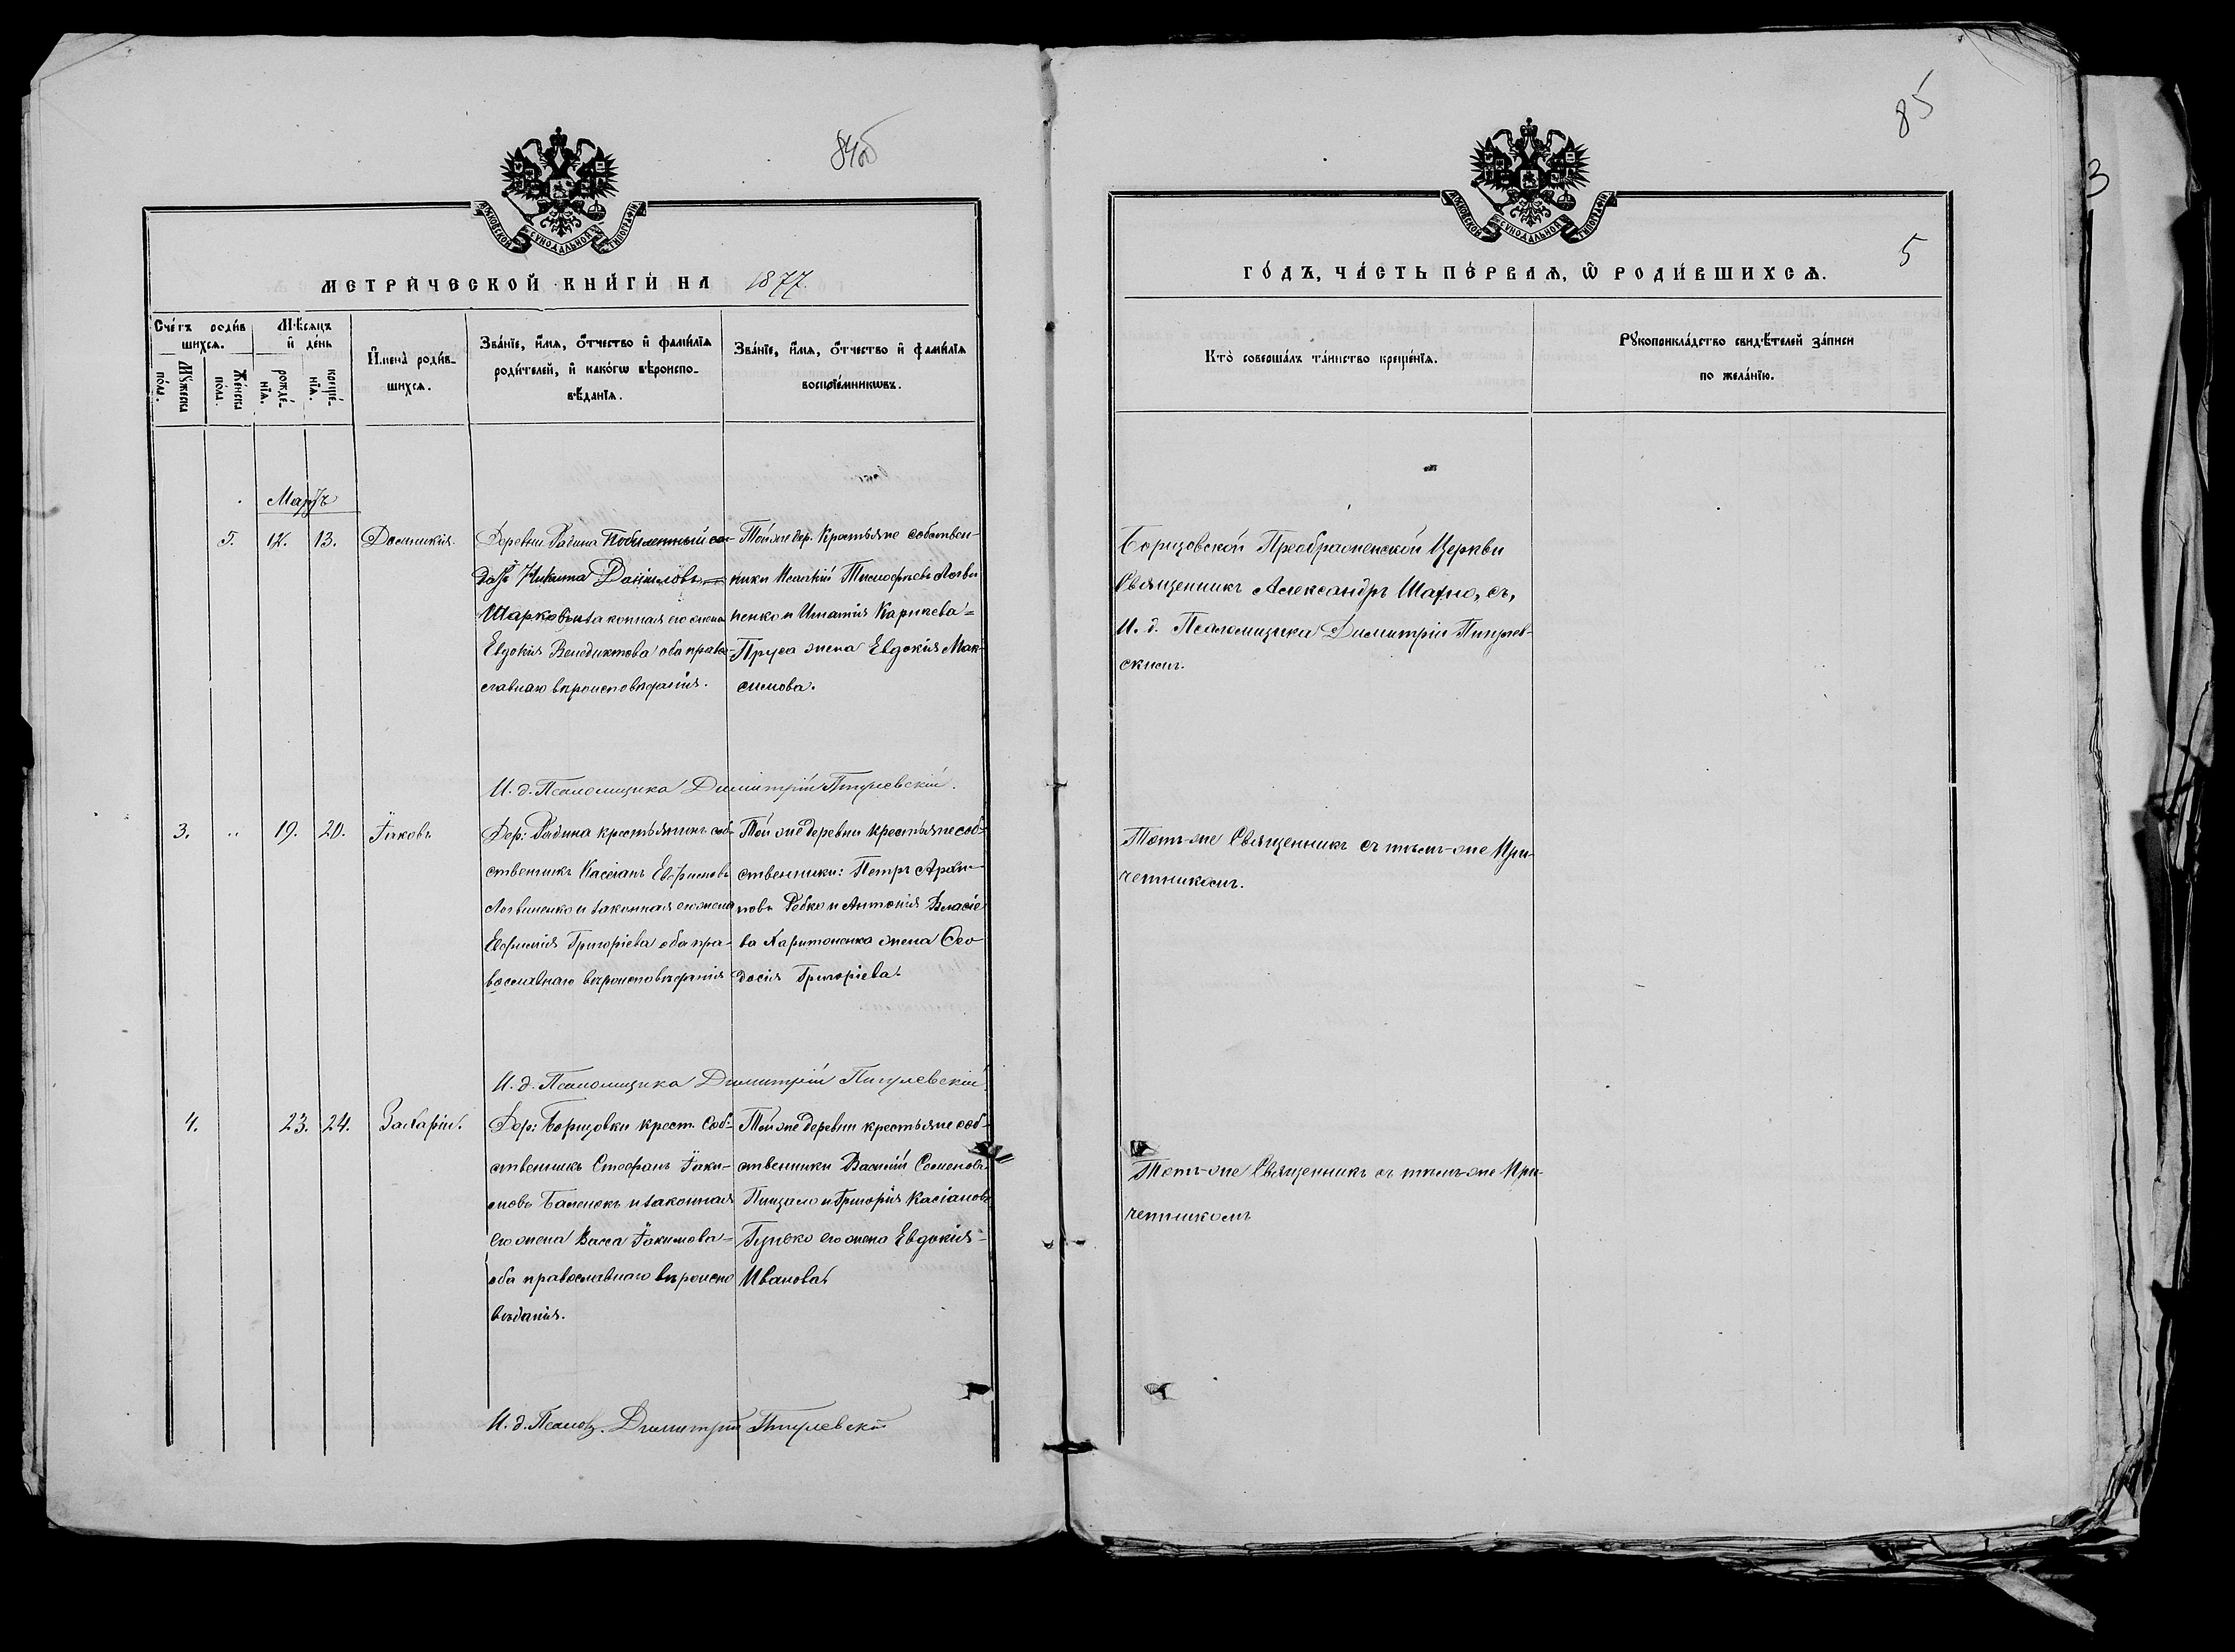 84об
85
3
МОСКОВСКОЙ СѴНОДАЛЬНОЙ ТИПОГРАФІИ
МОСКОВСКОЙ СѴНОДАЛЬНОЙ ТИПОГРАФІИ
МЕТРИ́ЧЕСКОЙ КНИ́ГИ НА 1877.
ГО́ДЪ, ЧА́СТЬ ПЕ́РВАѦ, Ѡ҆ РОДИ́ВШИХСѦ. 5
Сче́тъ роди́вшихсѧ.
Мꙋ́жеска по́ла.
Же́нска по́ла.
Мѣ́сѧцъ и҆ де́нь
рожде́нїѧ.
креще́нїѧ.
И҆мена̀ роди́вшихсѧ.
Зва́нїе, и҆́мѧ, ѻ҆́тчество и҆ фами́лїѧ
роди́телей, и҆ како́гѡ вѣроиспо-
вѣ́данїѧ.
Зва́нїе, и҆́мѧ, ѻ҆́тчество и҆ фами́лїѧ
воспрїе́мникѡвъ.
Кто̀ соверша́лъ та́инство креще́нїѧ.
Рꙋкоприкла́дство свидѣ́телей за́писи
по жела́нїю.
Мартъ
5. 12. 13. Домникія.
Деревни Рабина Побилетный сол-
датъ Никита Даніиловъ
Шарковъ и законная его жена
Евдокія Венедиктова оба право-
славнаго вѣроисповѣданія.
Той же дер. Крестьяне собствен-
ники Тимофѣевъ Логви
ненко и Игнатія Карпѣева
Пруса жена Евдокія Мак-
симова.
Борщовской Преображенской Церкви
Священникъ Александръ съ,
И. д. Псаломщика Димитріи Пигулев-
скимъ.
И. д. Псаломщика Димитрій Пигулевскій.
3. 19. 20. Іаковъ
Дер: Рабина крестьянинъ соб-
ственникъ Кассіанъ Евфимовъ
Логвиненко и законная его жена
Евфимія Григоріева оба пра-
вославнаго вѣроисповѣданія
Той же деревни крестьяне соб-
ственники: Петръ
повъ Рябко и Антонія Власіе
ва Харитоненка жена Ѳео
досія Григоріева.
Тотъ-же Священникъ съ тѣмъ-же При-
четникомъ.
И. д. Псаломщика Димитрій Пигулевскій.
4. 23. 24. Захарій.
Дер: Борщовки крест. Соб-
ственникъ Стефанъ Іаки-
мовъ и законная
его жена Васса Іакимова
оба православнаго вѣроиспо
вѣданія.
Той же деревни крестьяне соб-
ственники Василій Семеновъ
Пищало и Григорія Касіанова
Гунько его жена Евдокія
Иванова.
Тотъ-же Священникъ съ тѣмъ-же При-
четникомъ
И. д. Псалом. Димитрій Пигулевскій